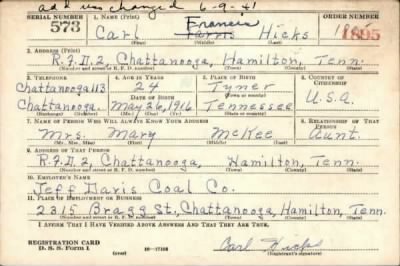 address changed 6-9-41
SERIAL NUMBER 1. NAME (Print) ORDER NUMBER
573 Carl Francis Hicks 1895
(First) (Middle) (Last)
2. ADDRESS (Print)
R.F.D.2, Chattanooga, Hamilton, Tenn.
(Number and street or R. F. D. number) (Town) (County) (State)
3. TELEPHONE 4. AGE IN YEARS 5. PLACE OF BIRTH 6. COUNTRY OF CITIZENSHIP
Chattanooga 113 24 Tyner
DATE OF BIRTH (Town or county)
Chattanooga. May 26, 1916 Tennessee U.S.A.
(Exchange) (Number) (Mo.) (Day) (Yr.) (State or country)
7. NAME OF PERSON WHO WILL ALWAYS KNOW YOUR ADDRESS 8. RELATIONSHIP OF THAT PERSON
Mrs. Mary McKee Aunt.
(Mr., Mrs., Miss) (First) (Middle) (Last)
9. ADDRESS OF THAT PERSON
R.F.D.2, Chattanooga, Hamilton, Tenn.
(Number and street or R. F. D. number) (Town) (County) (State)
10. EMPLOYER'S NAME
Jeff Davis Coal Co.
11. PLACE OF EMPLOYMENT OR BUSINESS
2315 Bragg St., Chattanooga, Hamilton, Tenn.
(Number and street or R. F. D. number) (Town) (County) (State)
I AFFIRM THAT I HAVE VERIFIED ABOVE ANSWERS AND THAT THEY ARE TRUE.
REGISTRATION CARD
D. S. S. Form 1 (over) 16-17105 Carl Hicks
(Registrant's signature)